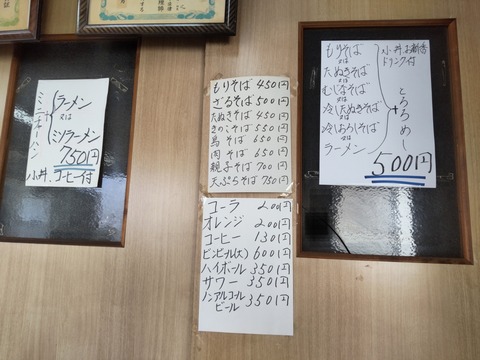 ラーメン
又は
ミソラーメン
750円
ミニチャーハン
+
小丼、コーヒー付
もりそば 450円
ざるそば 500円
たぬきそば 450円
きのこそば 550円
鳥そば 650円
肉そば 650円
親子そば 700円
天ぷらそば 750円
コーラ 200円
オレンジ 200円
コーヒー 130円
ビンビール(大) 600円
ハイボール 350円
サワー 350円
ノンアルコール
ビール 350円
もりそば
又は
たぬきそば
又は
むじなそば
又は
冷したぬきそば
又は
冷しおろしそば
又は
ラーメン
+
とろろめし
小丼 お新香
ドリンク付
500円